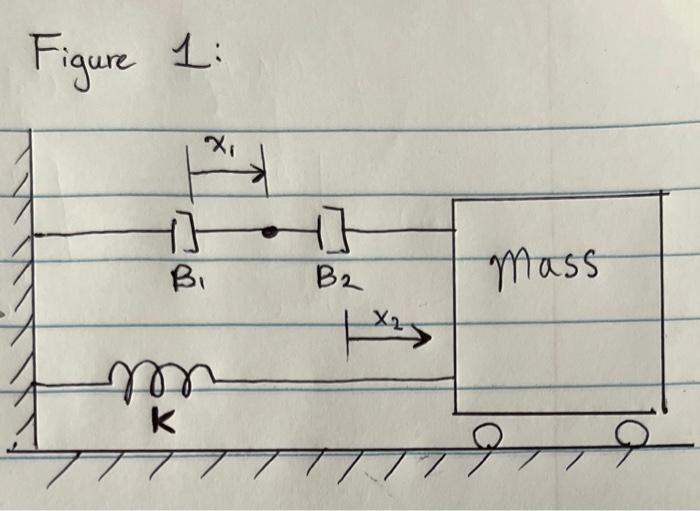 Figure 1:
x₁
B₁ B₂
Mass
x₂
K